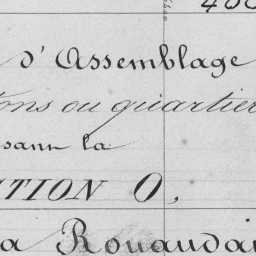 400
d'Assemblage
ons ou quartier
sant la
TION O,
a Rouaudai